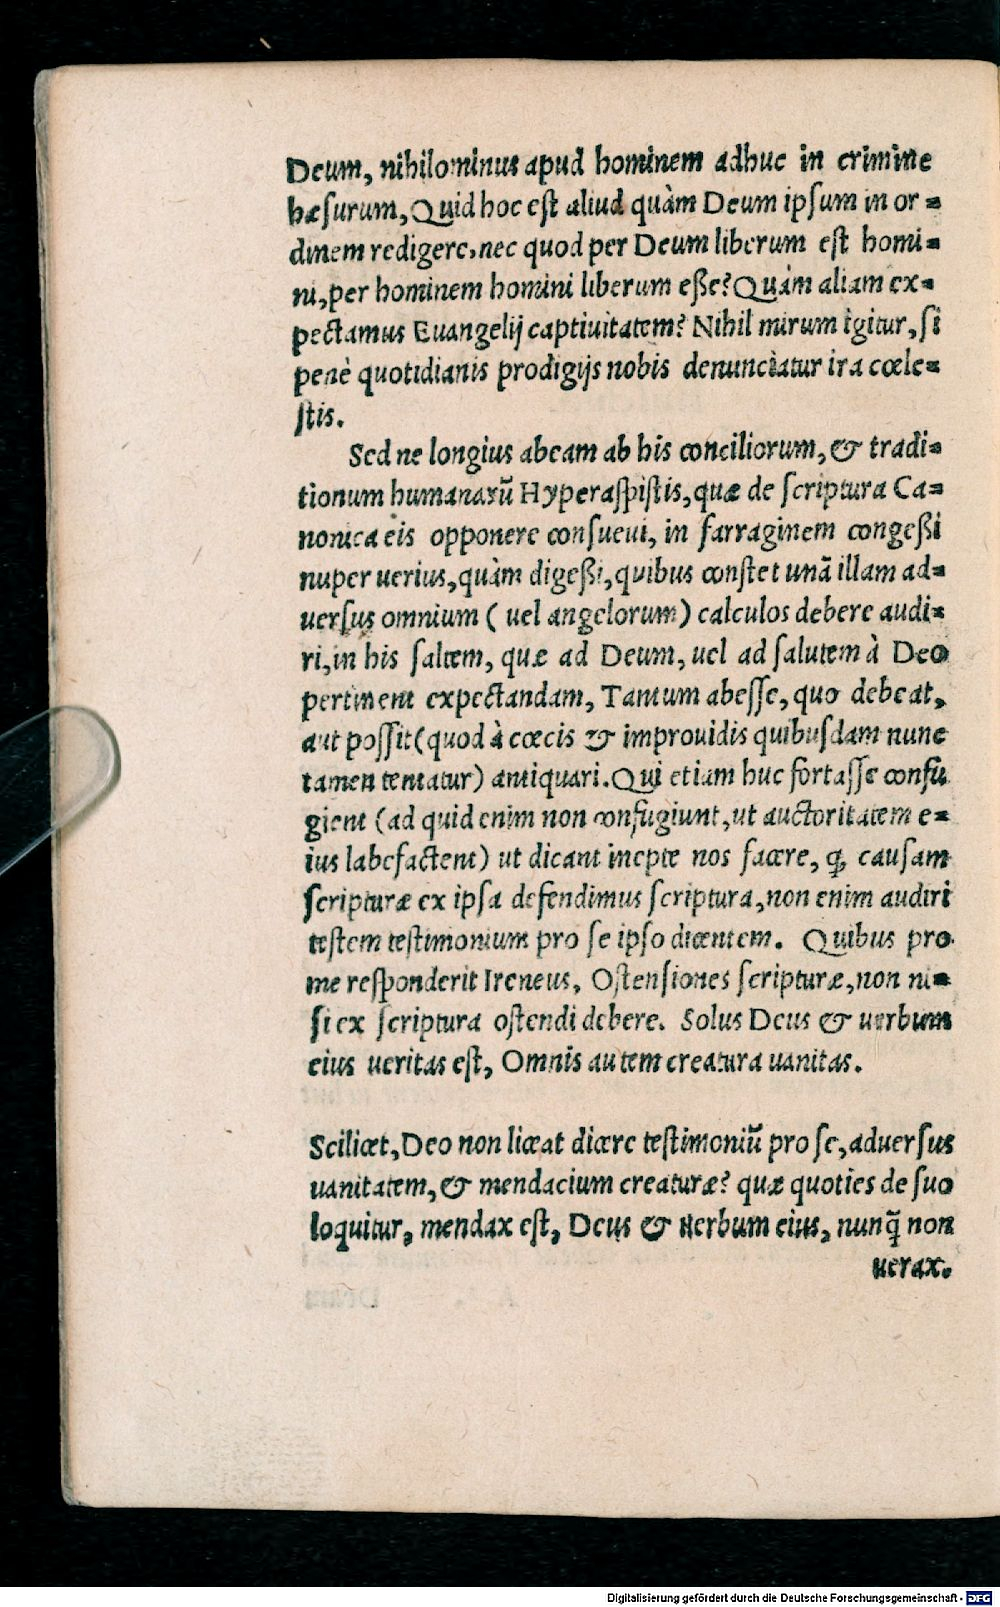 Deum, nihilominus apud hominem adhuc in crimine
hæsurum, Quid hoc est aliud quàm Deum ipsum in or=
dinem redigere, nec quod per Deum liberum est homi=
ni, per hominem homini liberum eße? Quàm aliam ex=
pectamus Euangelij captiuitatem? Nihil mirum igitur, si
penè quotidianis prodigijs nobis denunciatur ira cœle=
stis.
Sed ne longius abeam ab his conciliorum, & tradi=
tionum humanarū Hyperaspistis, quæ de scriptura Ca=
nonica eis opponere consueui, in farraginem congeßi
nuper uerius, quàm digeßi, quibus constet unā illam ad=
uersus omnium (uel angelorum) calculos debere audi=
ri, in his saltem, quæ ad Deum, uel ad salutem à Deo
pertinent expectandam, Tantum abesse, quo debeat,
aut possit (quod à cœcis & improuidis quibusdam nunc
tamen tentatur) antiquari. Qui etiam huc fortasse confu
gient (ad quid enim non confugiunt, ut auctoritatem e=
ius labefactent) ut dicant inepte nos facere, ꝙ causam
scripturæ ex ipsa defendimus scriptura, non enim audiri
testem testimonium pro se ipso dicentem. Quibus pro
me responderit Ireneus, Ostensiones scripturæ, non ni=
si ex scriptura ostendi debere. Solus Deus & uerbum
eius ueritas est, Omnis autem creatura uanitas.
Scilicet, Deo non liceat dicere testimoniū pro se, aduersus
uanitatem, & mendacium creaturæ? quæ quoties de suo
loquitur, mendax est, Deus & uerbum eius, nunq̃ non
uerax.
Digitalisierung gefördert durch die Deutsche Forschungsgemeinschaft - DFG